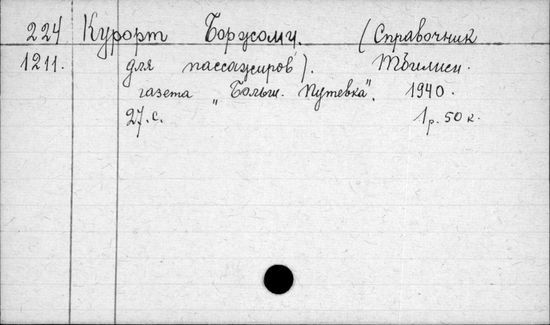 224 Курорт Боржоми. (Справочник
1211. для пассажиров). Тбилиси.
газета „Больш. Путевка". 1940.
27.с. 1р. 50к.